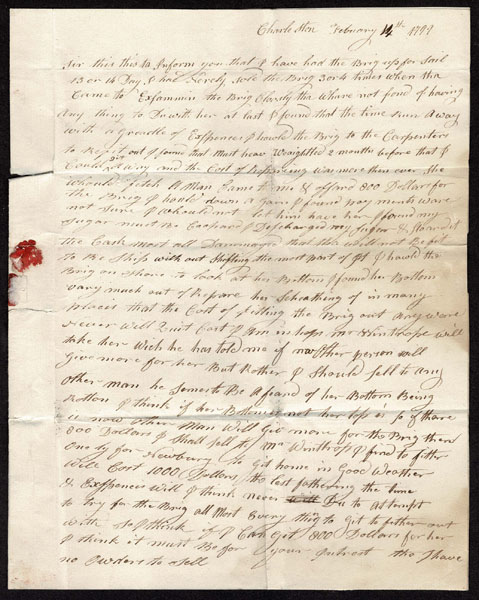 Charleston February 14th 1799
Sir this is to Inform you that I have had the Brig up for Sail
13 or 14 Day & had Nerely Sole the Brig 3 or 4 times when tha
Came to Exsammin the Brig Closely tha Whare not fond of having
Any thing to Do with her at last I found that the time Run Away
with a Greadle of Expences I hawld the Brig to the Carpenters
to Refit out I found that Must hear Waighted 2 months before that I
Could Git Away and the Cost of Repairing Was more then ever She
Whould fetch A Man Came to me & offard 800 Dollars for
the Brig I hauld down a gane I found pay ments Ware
not Sure I Whould not let him have her I found my
Sugar must Be Coopard I Descharged my Sugar &
the Cask most all Dammaged that tha Will not Be fit
to Be Ship with out Shifting the most part of it I hawld the
Brig on Shore to look at her Bottom I found her Bottom
vary much out of Repare her Scheathing of in many
places that the Cost of fitting the Brig out Any ware
never Will Quit Cost I Am in hops Mr Winthrop will
take her Wich he has told me if no other person will
Give more for her But Rother I Should Sell to Any
other man he Semes to Be Afeard of her Bottom Being
Rotton I think if her Bottom is not her top is So if thare
is now other Man Will Give more for the Brig then
800 Dollars I Shall Sell to Mr Winthrop I find to fitter
Ondy for Newbury to Git home in Good Weather
Will Cost 1000 Dollars the lost fathering the time
& Expences Will I think never Du to Attempt
to try for the Brig all Most Every thing to Git to father out
with So I think if I Can Get 800 Dollars for her
I think it must Be for your Intrest tho I have
no Orders to Sell